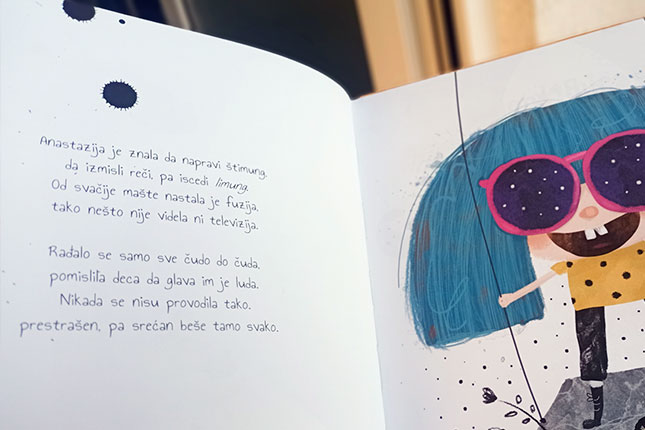 Anastazija je znala da napravi štimung,
da izmisli reči, pa iscedi limung.
Od svačije mašte nastala je fuzija,
tako nešto nije videla ni televizija.
Rađalo se samo sve čudo do čuda,
pomislila deca da glava im je luda.
Nikada se nisu provodila tako,
prestrašen, pa srećan beše tamo svako.